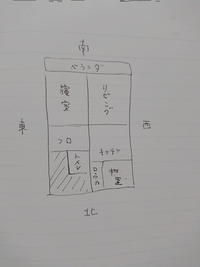 南
ベランダ
寝室
リビング
東
西
フロ
トイレ
キッチン
ロウカ
物置
北